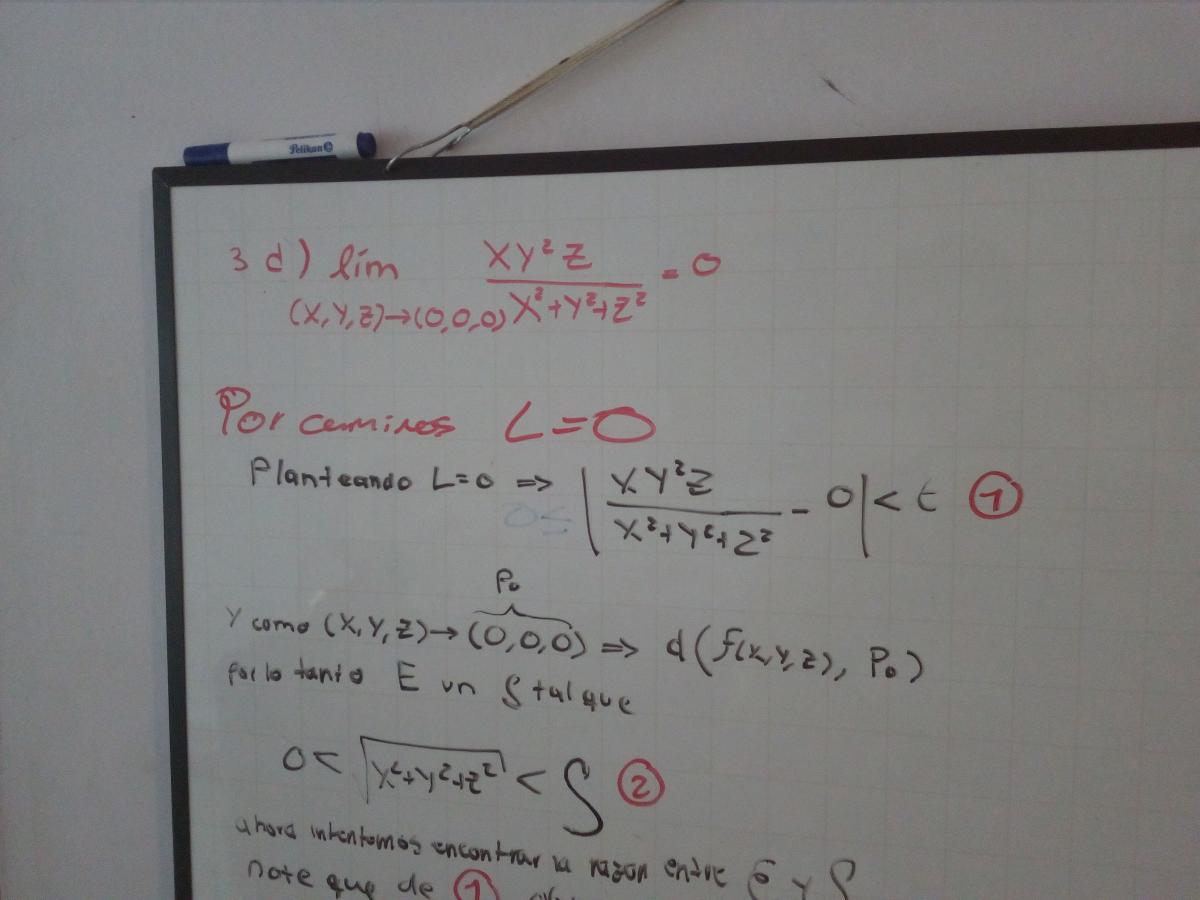 Pelikan
3 d) lím XY²Z / X²+Y²+Z² = 0
(X,Y,Z)→(0,0,0)
Por caminos L=0
Planteando L=0 ⇒ | XY²Z / X²+Y²+Z² - 0 | < ε ①
0≤
P₀
Y como (X,Y,Z)→(0,0,0) ⇒ d(f(X,Y,Z), P₀)
por lo tanto E un δ tal que
0 < √X²+Y²+Z² < δ ②
ahora intentemos encontrar la razon entre ε y δ
Note que de ①